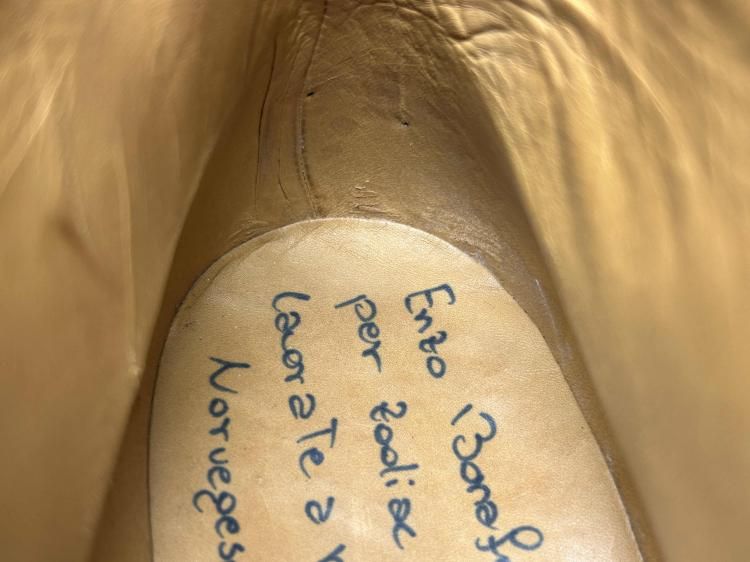 Enzo Bonaf
per zodiac
lavorate a
Norveges